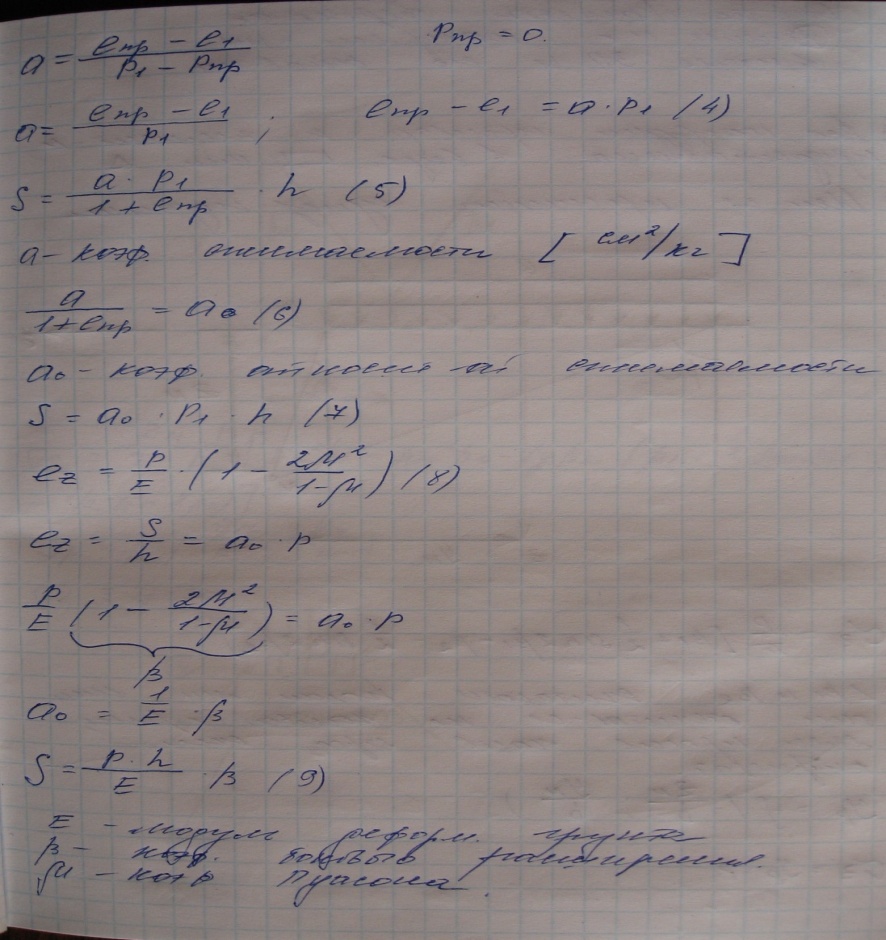 a = (eпр − e1)/(p1 − pпр)    Pпр = 0.
a = (eпр − e1)/p1 ;    eпр − e1 = a · p1 (4)
S = (a · p1)/(1 + eпр) · h (5)
a - коэф. сжимаемости [см²/кг]
a/(1+eпр) = a₀ (6)
a₀ - коэф. относит ой сжимаемости
S = a₀ · P1 · h (7)
ez = p/E · (1 − 2μ²/(1−μ)) (8)
ez = S/h = a₀ · p
p/E (1 − 2μ²/(1−μ)) = a₀ · p
β
a₀ = 1/E · β
S = (p · h)/E · β (9)
E - модуль деформ. грунта
β - коэф. бокового расширения.
μ - коэф Пуасона.